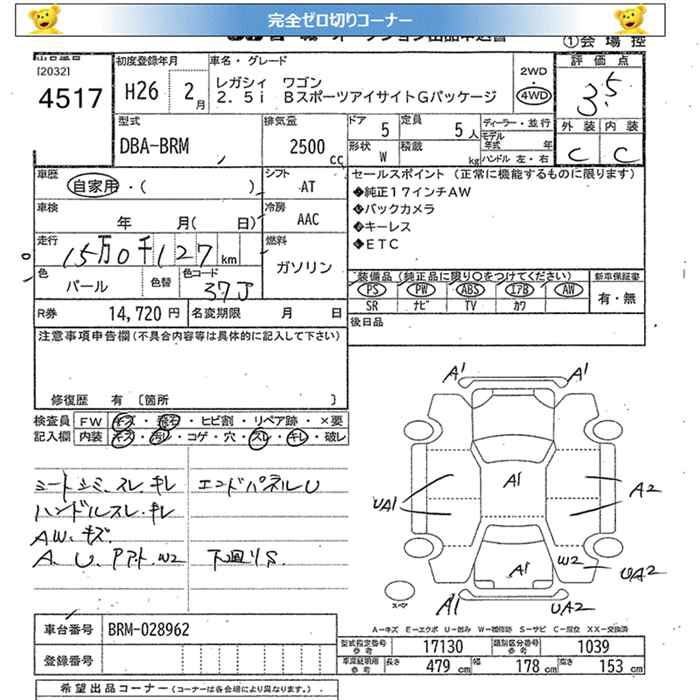 完全ゼロ切りコーナー
①会場控
[2032]
4517
初度登録年月
H26 2月
車名・グレード
レガシィ ワゴン
2.5i BスポーツアイサイトGパッケージ
2WD
4WD
評価点
3.5
外装 内装
C C
型式
DBA-BRM
排気量
2500cc
ドア 5
定員 5人
形状 W
積載 kg
ディーラー・並行
モデル年式 年
ハンドル 左・右
車歴
自家用・( )
シフト
AT
車検
年 月( 日)
冷房
AAC
走行
15万0千127km
燃料
ガソリン
色
パール
色替
色コード
37J
R券 14,720円
名変期限 月 日
セールスポイント (正常に機能するものに限ります)
◆純正17インチAW
◆バックカメラ
◆キーレス
◆ETC
装備品(純正品に限り○をつけてください)
新車保証書
PS PW ABS エアB AW
有・無
SR ナビ TV カワ
後日品
注意事項申告欄(不具合内容等は具体的に記入して下さい)
修復歴 有 〔箇所 〕
検査員 FW キズ・飛石・ヒビ割・リペア跡・×要
記入欄 内装 キズ・汚レ・コゲ・穴・スレ・キレ・破レ
シートシミ、スレ、キレ
エンドパネルU
ハンドルスレ、キレ
AW、キズ
A、U、Pアト、W2
下廻りS
A1 A1
A1
UA1
A2
A1
W2
UA2
A1
UA2
スペア
A-キズ E-エクボ U-凹み W-補修跡 S-サビ C-腐食 XX-交換済
車台番号 BRM-028962
登録番号
型式指定番号参考 17130
類別区分番号参考 1039
車庫証明用参考
長さ 479cm
幅 178cm
高さ 153cm
希望出品コーナー(コーナーは各会場により異なります。)